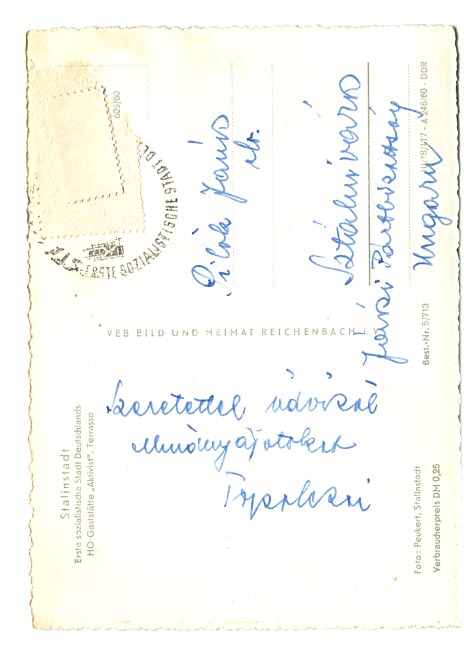 Stalinstadt
Erste sozialistische Stadt Deutschlands
HO-Gaststätte „Aktivist“, Terrasse
Szeretettel üdvözöl
Mindnyájatokat
VEB BILD UND HEIMAT REICHENBACH i. V.
ERSTE SOZIALISTISCHE STADT DE
605/60
János
elv.
Sztálinváros
Járási Pártbizottság
Ungarn
A 246/60 - DDR
Best.-Nr. 5/713
Foto: Peukert, Stalinstadt
Verbraucherpreis DM 0,25